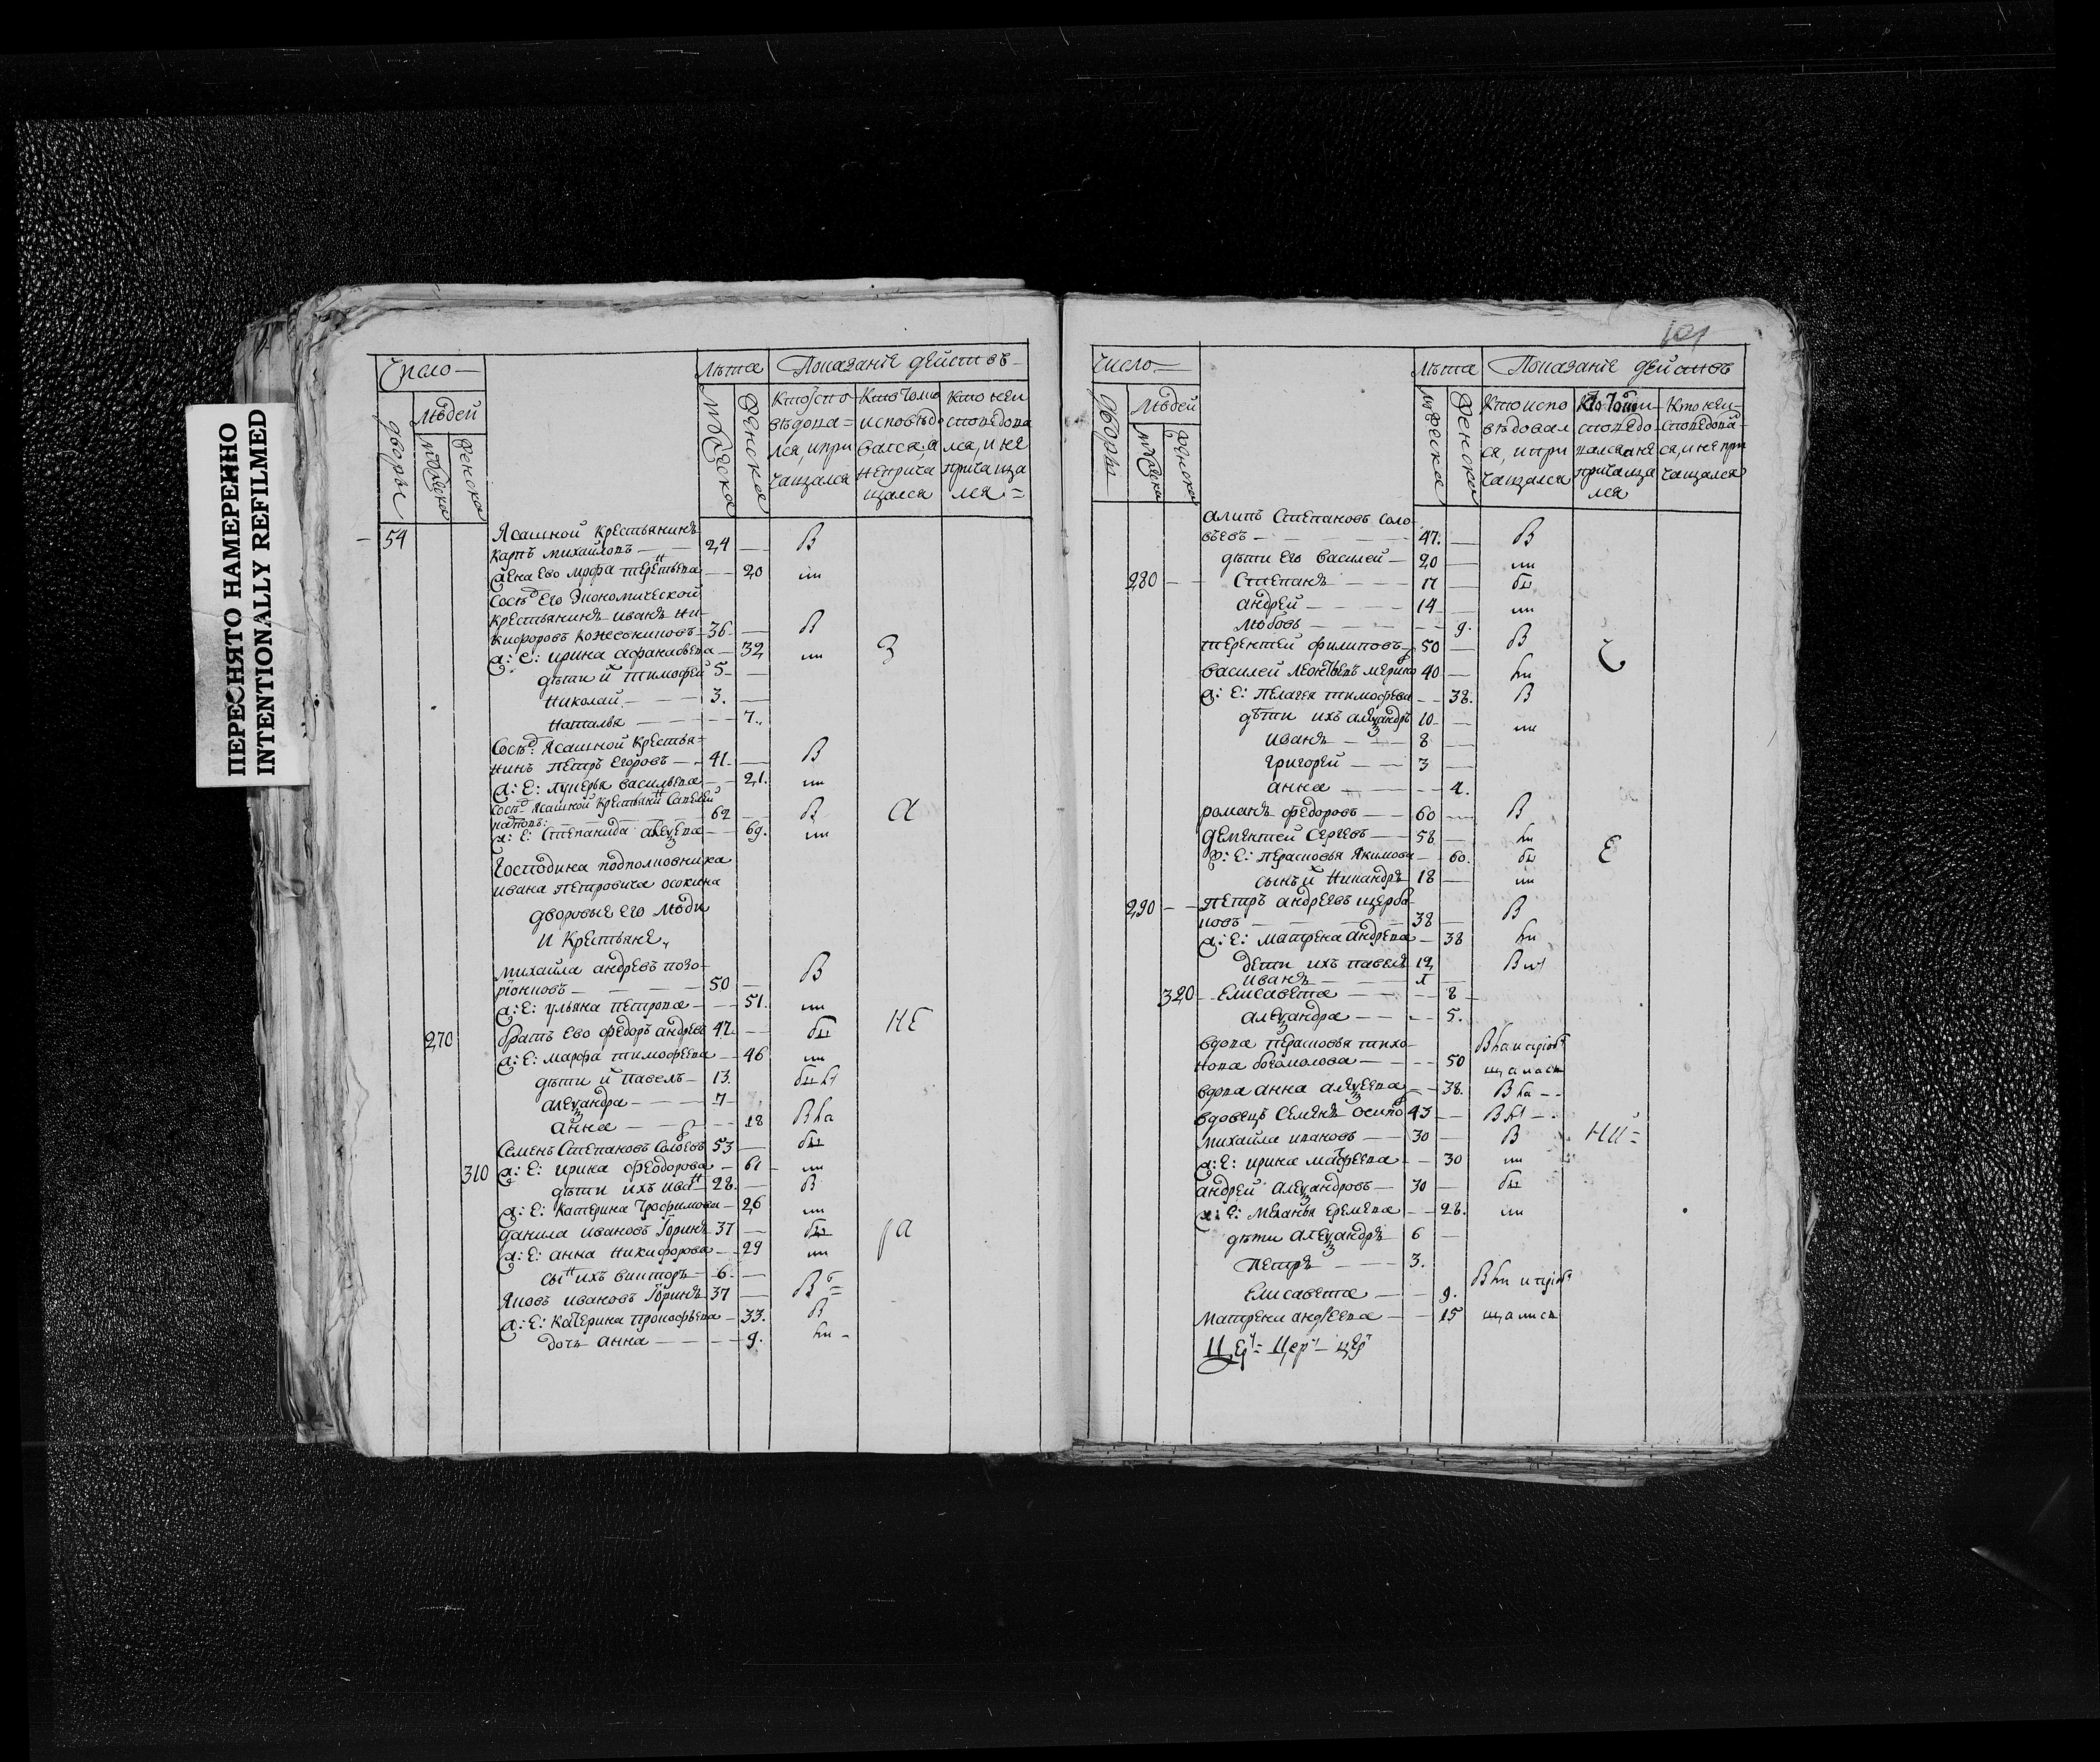 ПЕРЕСНЯТО НАМЕРЕННО
INTENTIONALLY REFILMED
Число
лѣта
Показаніе действъ
людей
дворы
мужеска
женска
мужеска
женска
Кто испо
вѣдова=
лся, и при
чащался
Кто токмо
исповѣдо
вался, а
неприча
щался
Кто неи
споведова
лся, и не
причаща
лся =
54
Ясашной Крестьянинъ
карпъ михайловъ 24 В
жена ево мрфа терентьева 20
Сосѣд его Экономической
крестьянинъ иванъ ни-
кифоровъ кожевниковъ 36 В
ж: Е: ирина афанасьева 32 З
дѣти и тимофей 5
Николай 3.
Наталья 7.
Сосѣд: Ясашной крестья-
нинъ петръ егоровъ 41 В
ж: Е: лукерья васильева 21.
Сосѣд Ясашной крестьянин Савелей
62 В а
ж: Е: Степанида алеѯева 69.
Господина подполковника
ивана петровича осокина
дворовые его люди
и Крестьяне
михайла андреевъ
50 В
ж: Е: ульяна петрова 51.
270 братъ ево федоръ андреев 47 НЕ
ж: Е: марфа тимофеева 46
дѣти и павелъ 13.
алеѯандра 7
анна 18
Семенъ Степановъ Соловевъ 53
310 ж: Е: ирина феодорова 61
дѣти ихъ иван 28. В
ж: Е: катерина трофимова 26
данила ивановъ Горинъ 37
ж: Е: анна никифорова 29
сын ихъ викторъ 6.
Яковъ ивановъ Горинъ 37
ж: Е: катерина прокофьева 33. В
дочь анна 9.
101
число
лѣта
Показаніе действъ
людей
дворы
мужеска
женска
мужеска
женска
Кто испо
вѣдовал
ся, и при
чащался
споведо
вался а не
причаща
лся
Кто неи
споведова
ся, и не при
чащался
алипъ Степановъ Соло-
вьевъ 47. В
дѣти его василей 20
280 Степанъ 17
андрей 14
любовь 9.
терентей филиповъ 50 В
василей леонтьевъ 40
ж: Е: пелагея тимофеева 38. В
дѣти ихъ алеѯандръ 10
иванъ 8
григорей 3
анна 4.
романъ федоровъ 60 В
дементей сергеевъ 58
ж: Е: перасковья якимова 60. Е
сынъ и никандръ 18
290 петръ андреевъ щерба-
ковъ 38 В
ж: Е: матрена андреева 38
дети ихъ павелъ 12
иванъ
320 Елисавета 8
алеѯандра 5.
вдова перасковья тихо-
нова богомолова 50
вдова анна алеѯеева 38.
вдовецъ Семенъ осипов 43
михайла ивановъ 30 В
ж: Е: ирина матфеева 30
андрей алеѯандровъ 30
ж: Е: меланья еремеева 28.
дѣти алеѯандръ 6
петръ 3.
Елисавета 9.
матрена андреева 15